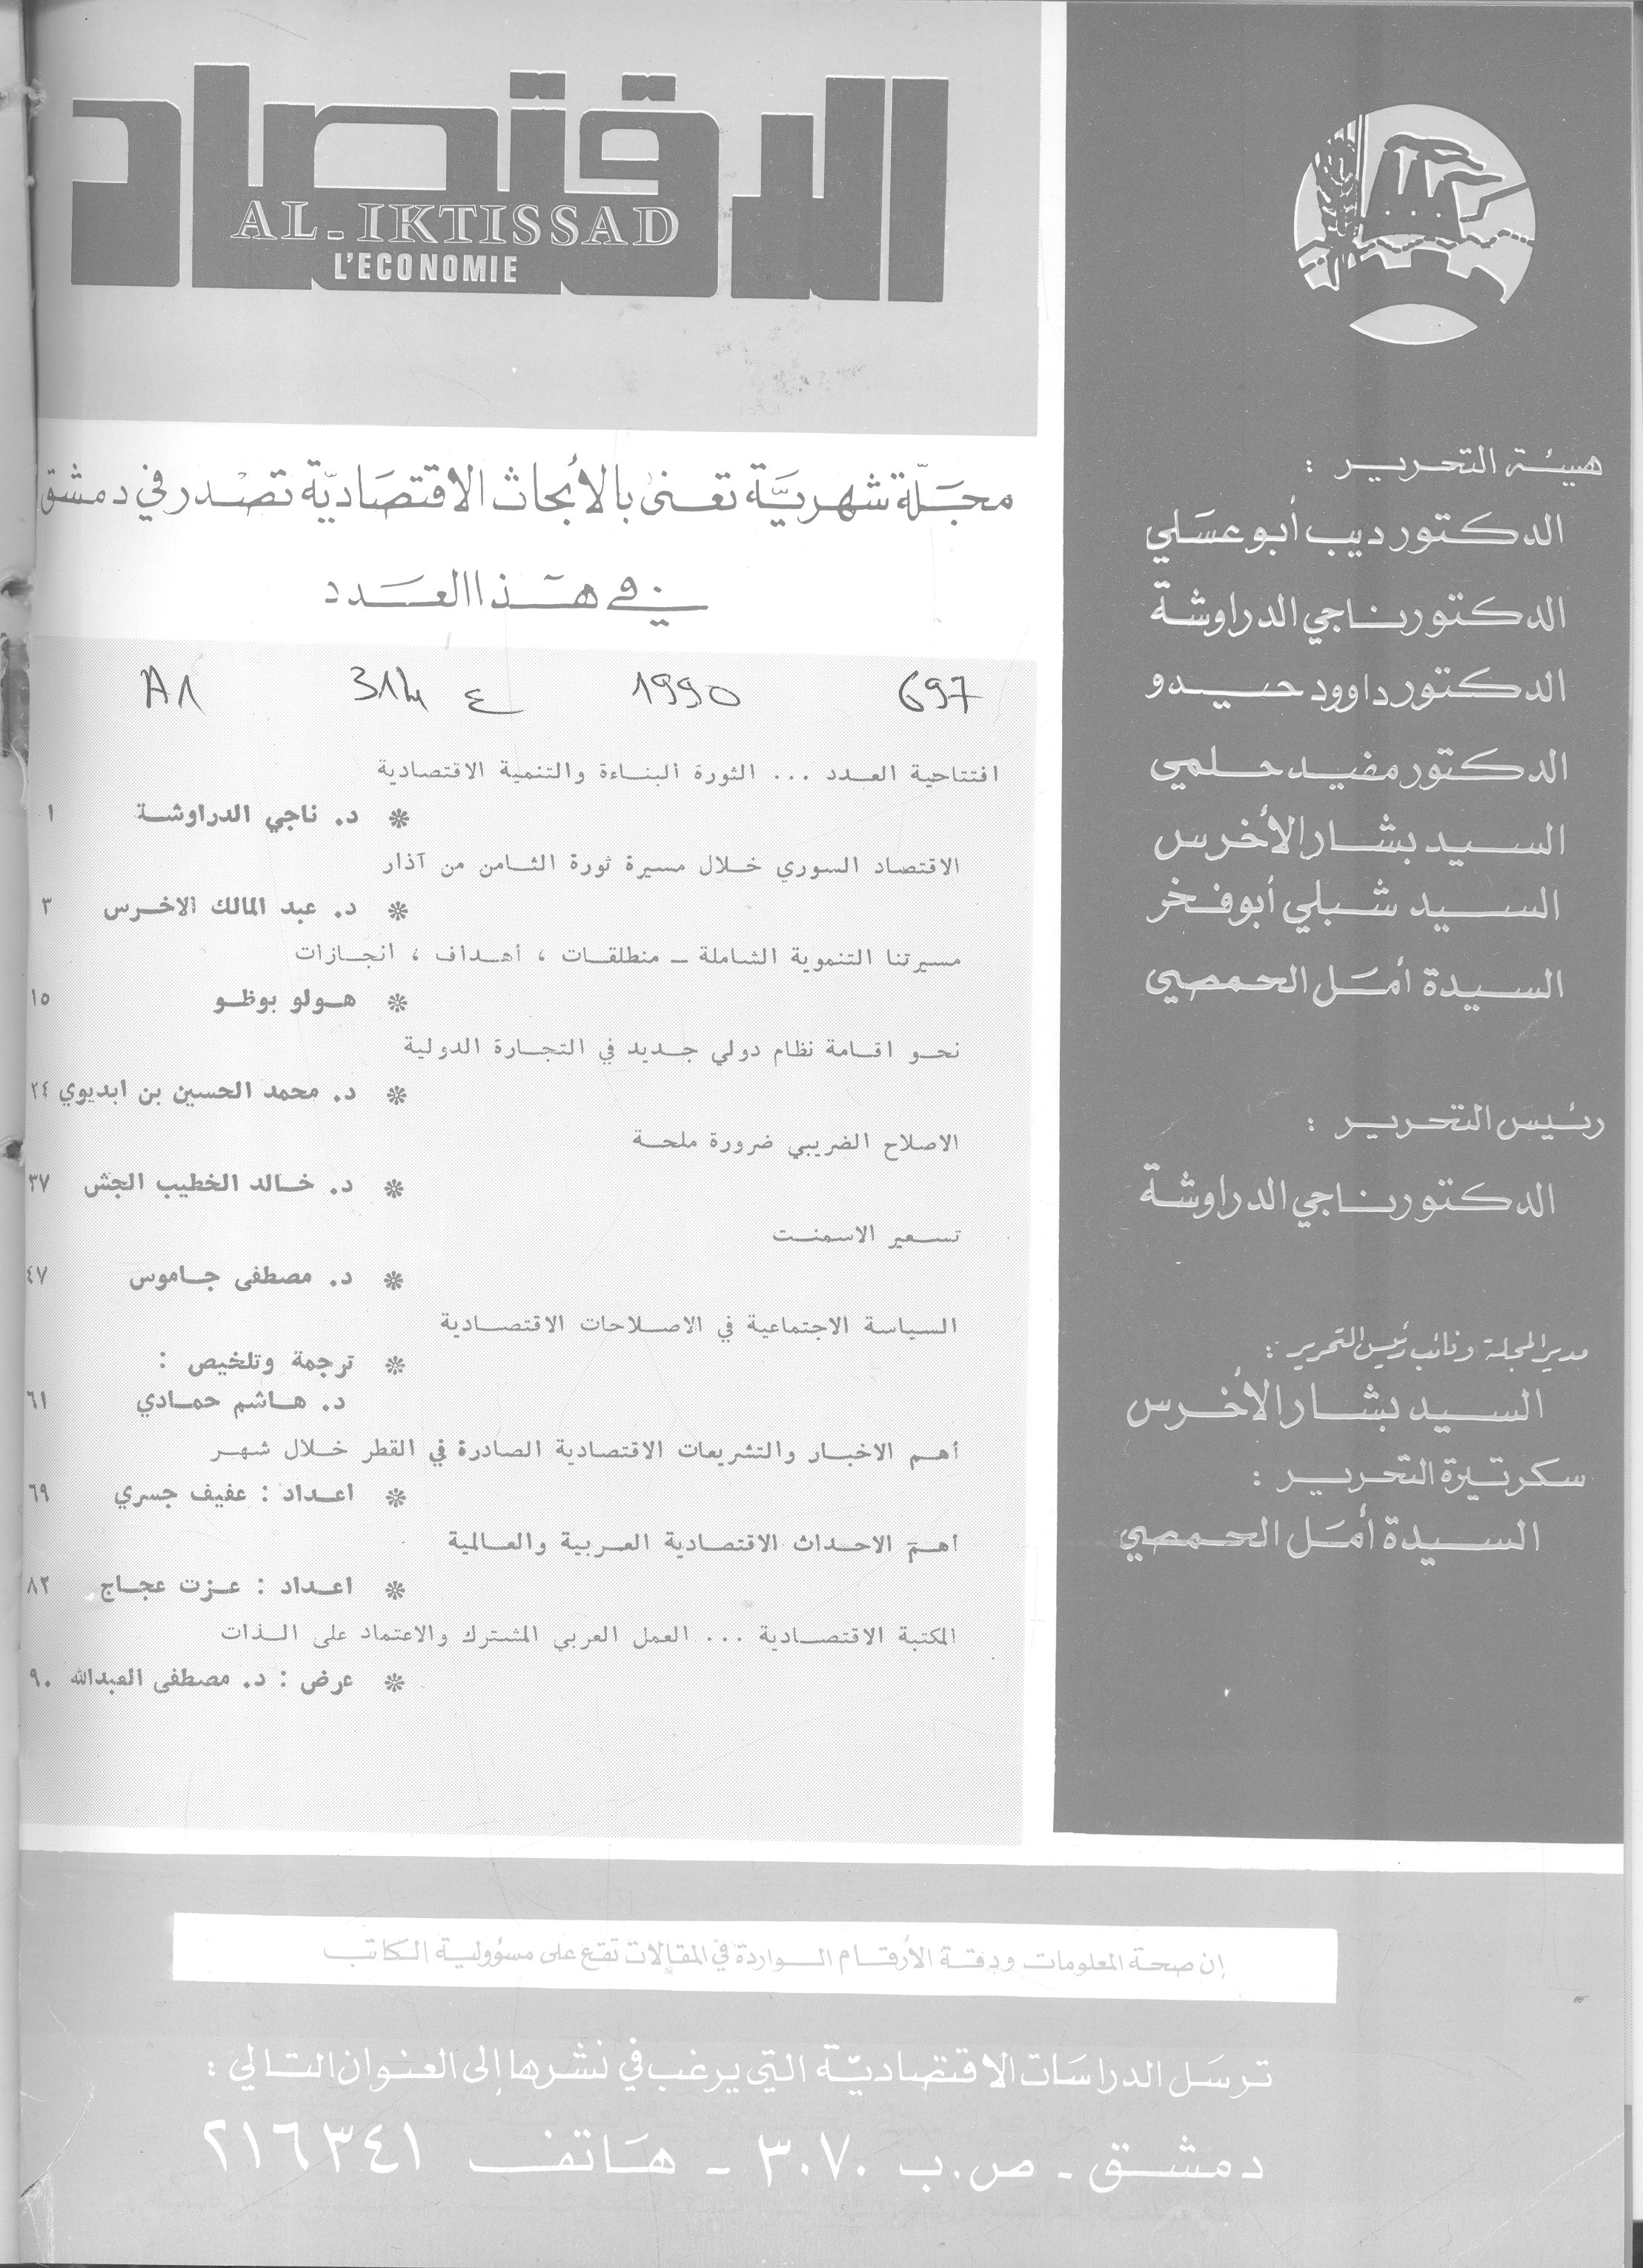 الاقتصاد
AL-IKTISSAD
L'ECONOMIE
مجلة شهرية تعنى بالأبحاث الاقتصادية تصدر في دمشق
في هذا العدد
697 1990 ع 314 A1
افتتاحية العدد ... الثورة البناءة والتنمية الاقتصادية
* د. ناجي الدراوشة ١
الاقتصاد السوري خلال مسيرة ثورة الثامن من آذار
* د. عبد المالك الاخرس ٣
مسيرتنا التنموية الشاملة ـ منطلقات ، أهداف ، انجازات
* هولو بوظو ١٥
نحو اقامة نظام دولي جديد في التجارة الدولية
* د. محمد الحسين بن ابديوي ٢٤
الاصلاح الضريبي ضرورة ملحة
* د. خالد الخطيب الجش ٣٧
تسعير الاسمنت
* د. مصطفى جاموس ٤٧
السياسة الاجتماعية في الاصلاحات الاقتصادية
* ترجمة وتلخيص :
د. هاشم حمادي ٦١
أهم الاخبار والتشريعات الاقتصادية الصادرة في القطر خلال شهر
* اعداد : عفيف جسري ٦٩
اهم الاحداث الاقتصادية العربية والعالمية
* اعداد : عزت عجاج ٨٢
المكتبة الاقتصادية ... العمل العربي المشترك والاعتماد على الذات
* عرض : د. مصطفى العبدالله ٩٠
هيئة التحرير :
الدكتور ديب أبو عسلي
الدكتور ناجي الدراوشة
الدكتور داوود حيدو
الدكتور مفيد حلمي
السيد بشار الأخرس
السيد شبلي أبو فخر
السيدة أمل الحمصي
رئيس التحرير :
الدكتور ناجي الدراوشة
مدير المجلة ونائب رئيس التحرير :
السيد بشار الأخرس
سكرتيرة التحرير :
السيدة أمل الحمصي
إن صحة المعلومات ودقة الأرقام الواردة في المقالات تقع على مسؤولية الكاتب
ترسل الدراسات الاقتصادية التي يرغب في نشرها إلى العنوان التالي :
دمشق ـ ص.ب ٣٠٧٠ ـ هاتف ٢١٦٣٤١